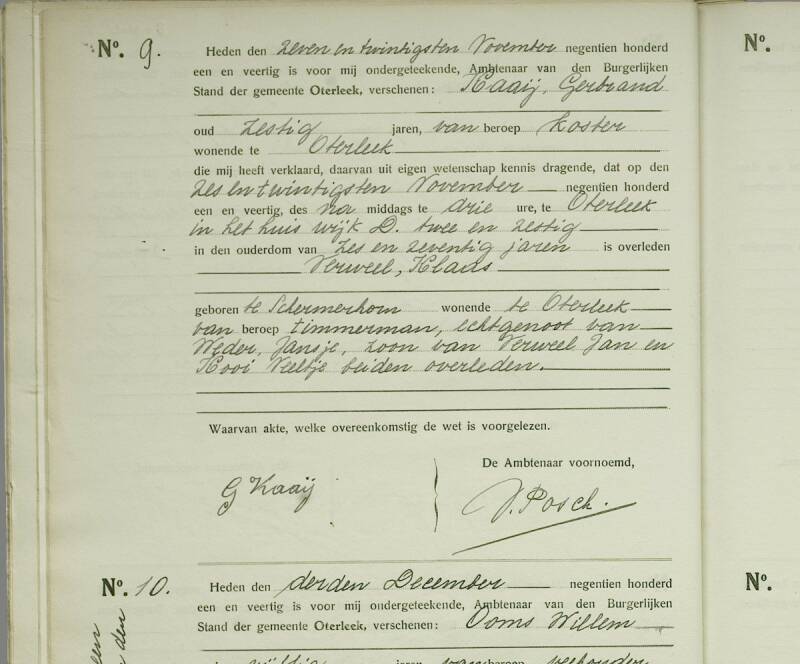 No. 9. Heden den zeven en twintigsten November negentien honderd
een en veertig is voor mij ondergeteekende, Ambtenaar van den Burgerlijken
Stand der gemeente Oterleek, verschenen: Kaaij, Gerbrand
oud zestig jaren, van beroep koster
wonende te Oterleek
die mij heeft verklaard, daarvan uit eigen wetenschap kennis dragende, dat op den
zes en twintigsten November negentien honderd
een en veertig, des na middags te drie ure, te Oterleek
in het huis wijk D. twee en zestig
in den ouderdom van zes en zeventig jaren is overleden
Verweel, Klaas
geboren te Schermerhorn wonende te Oterleek
van beroep timmerman, echtgenoot van
Weder, Jansje, zoon van Verweel Jan en
Kooi Neeltje beiden overleden.
Waarvan akte, welke overeenkomstig de wet is voorgelezen.
De Ambtenaar voornoemd,
G Kaaij
J. Posch.
No. 10. Heden den derden December negentien honderd
een en veertig is voor mij ondergeteekende, Ambtenaar van den Burgerlijken
Stand der gemeente Oterleek, verschenen: Ooms Willem
jaren, van beroep
No.
No.